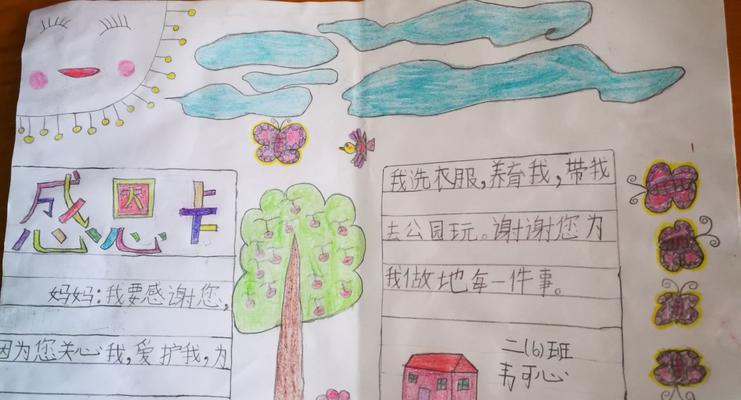 感恩卡
妈妈:我要感谢您,
因为您关心我,爱护我,为
我洗衣服,养育我,带我
去公园玩。谢谢您为
我做地每一件事。
二(6)班
韦可心